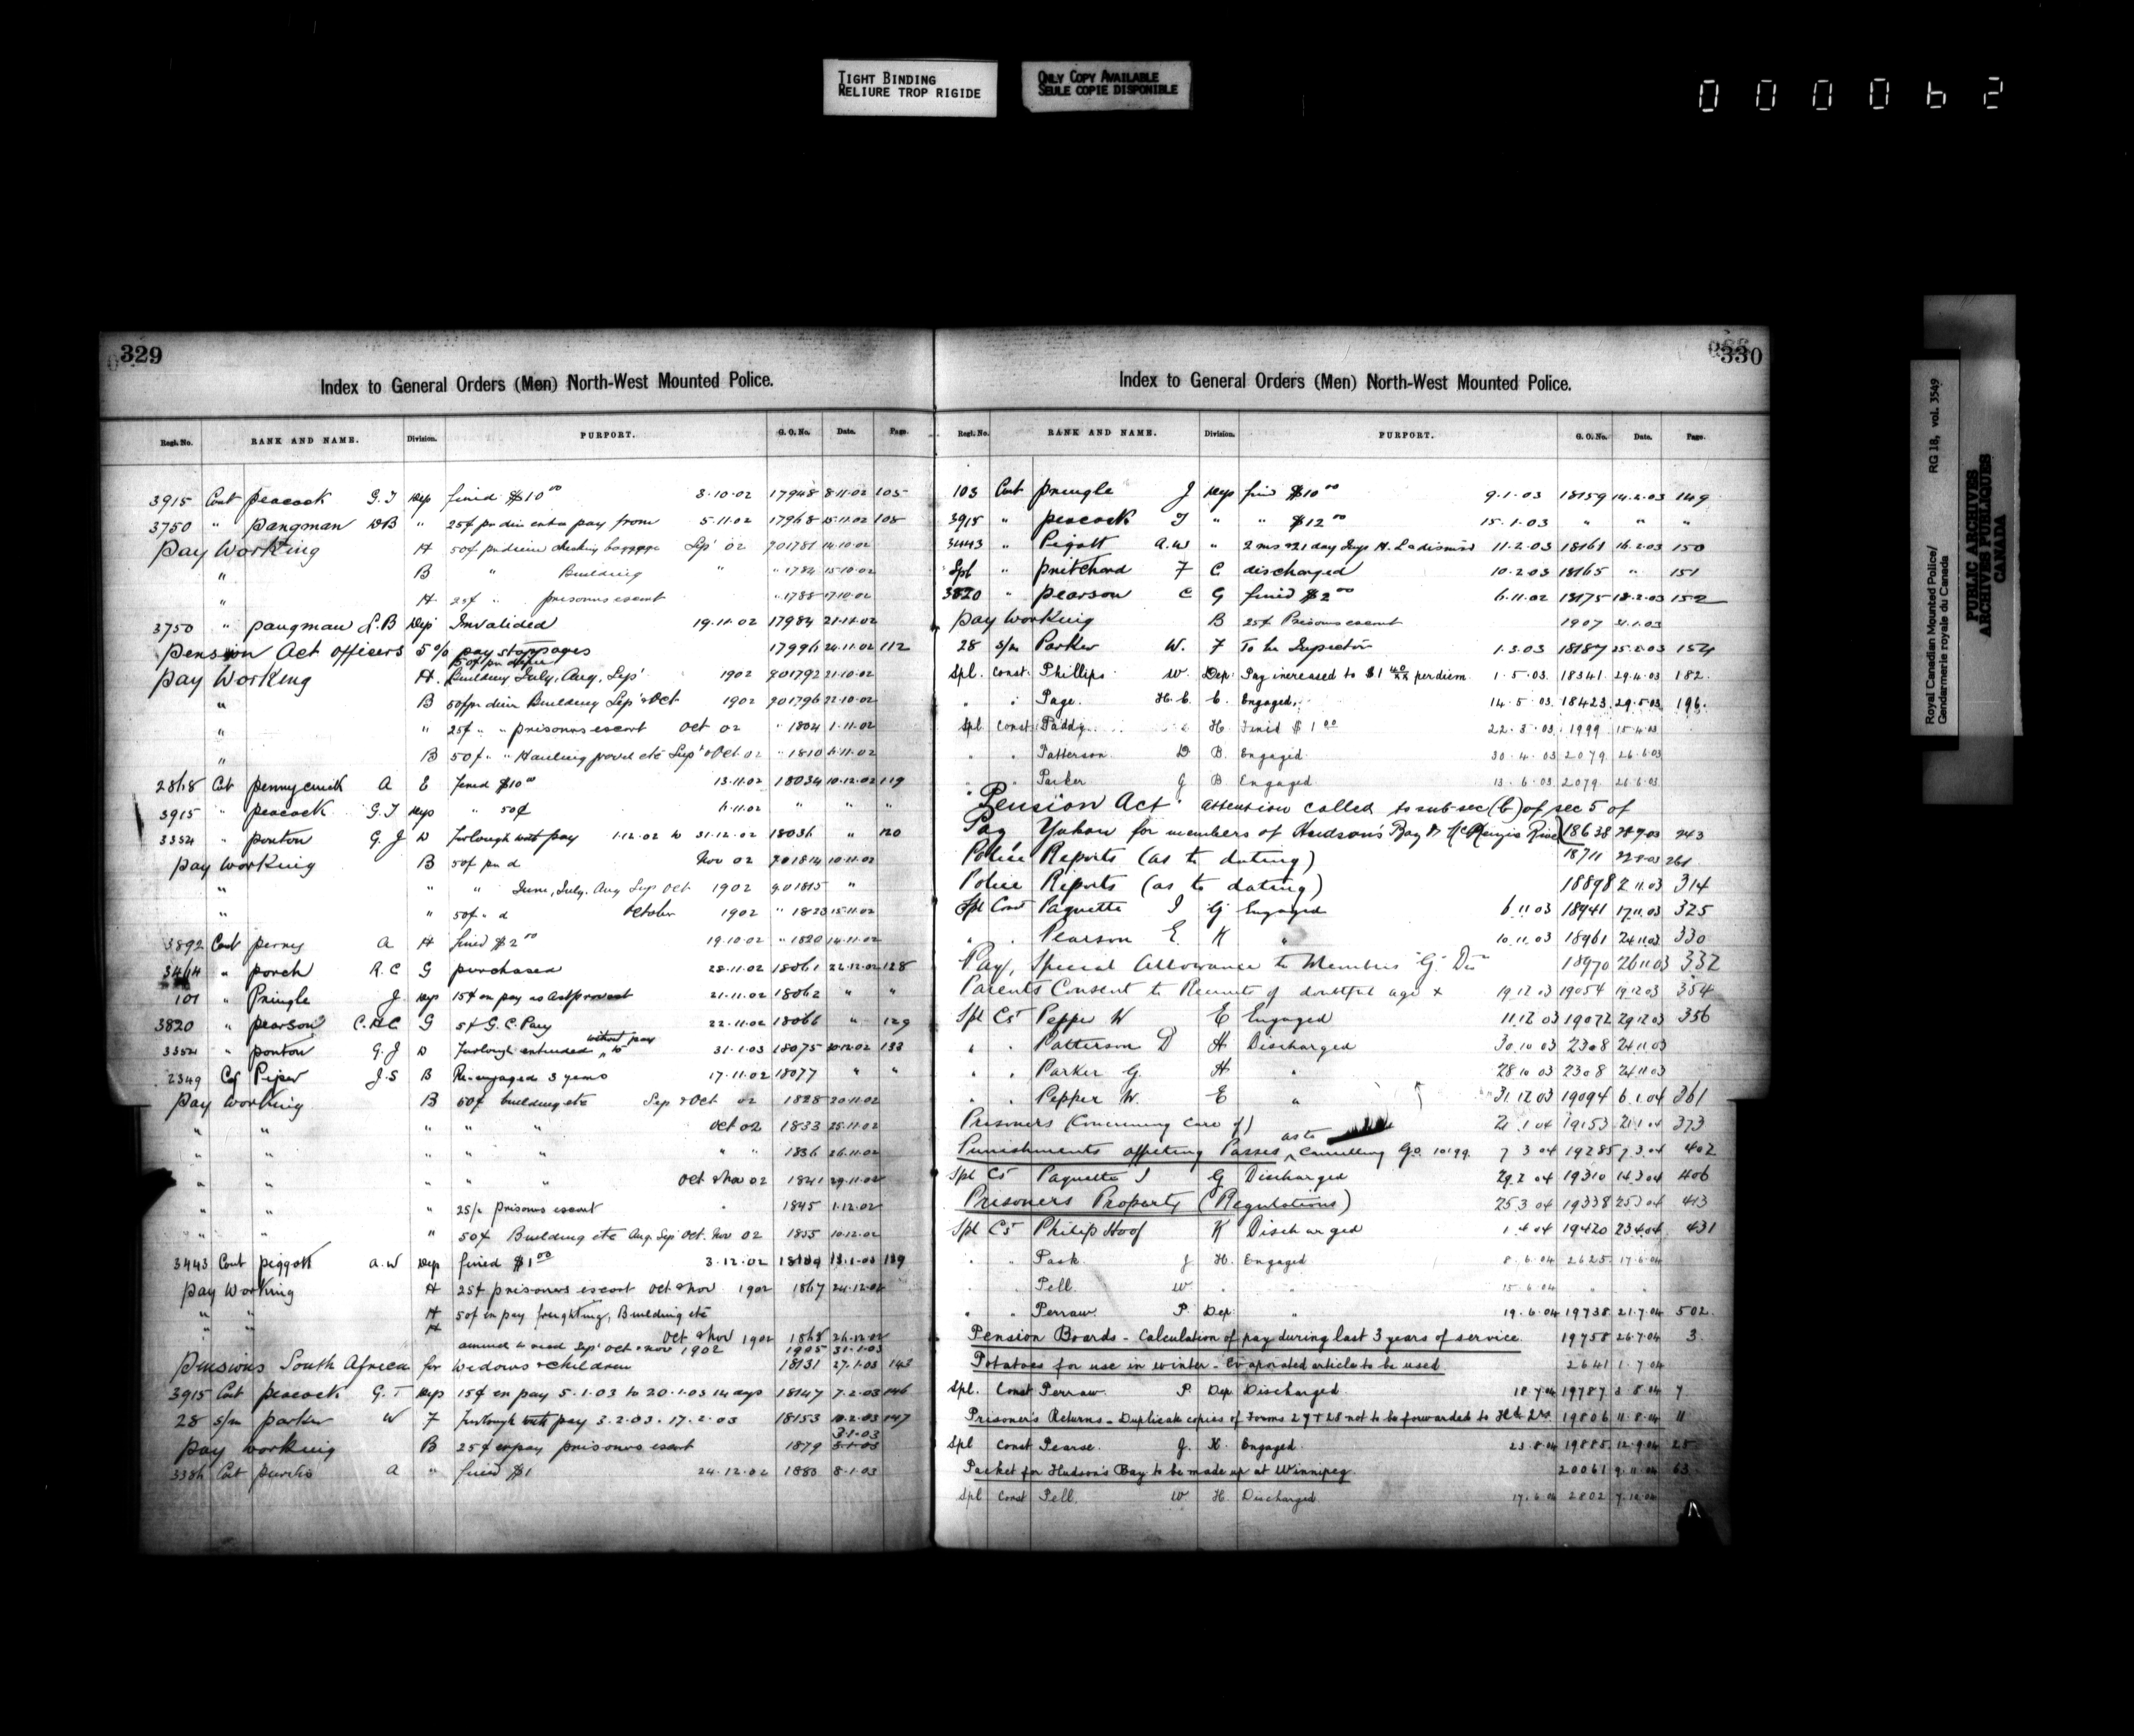 TIGHT BINDING
RELIURE TROP RIGIDE
ONLY COPY AVAILABLE
SEULE COPIE DISPONIBLE
000062
329
Index to General Orders (Men) North-West Mounted Police.
Regt. No. RANK AND NAME. Division. PURPORT. G. O. No. Date. Page.
3915 Const peacock G.T Dep fined $10 00 3.10.02 17948 8.11.02 105
3750 " pangman DB " 25¢ pr diem extra pay from 5.11.02 17968 15.11.02 108
pay Working H 50¢ pr diem checking baggage Sep' 02 901781 14.10.02
" B " Building " " 1784 15.10.02
" H 25¢ " prisoners escort " 1788 17.10.02
3750 " pangman L.B Dep Invalided 19.11.02 17984 21.11.02
pension Act officers 5% pay stoppages 17996 24.11.02 112
pay Working H. 50¢ pr diem Building July, Aug, Sep' 1902 901792 21.10.02
" B 50¢ pr diem Building Sep' & Oct 1902 901796 22.10.02
" " 25¢ " " prisoners escort Oct 02 " 1804 1.11.02
" B 50¢ " " Hauling gravel etc Sep' & Oct 02 " 1810 6.11.02
2868 Cst pennycuick A E fined $10 00 13.11.02 18034 10.12.02 119
3915 " peacock G.T Dep " 50¢ 6.11.02 " " "
3354 " ponton G. J D Furlough with pay 1.12.02 to 31.12.02 18036 " 120
pay working B 50¢ pr d Nov 02 901814 10.11.02
" " " June, July, Aug Sep Oct 1902 901815 "
" " 50¢ " d October 1902 " 1823 15.11.02
3892 Const perney A H fined $2 00 19.10.02 " 1820 14.11.02
3464 " porch R.C G purchased 28.11.02 18061 22.12.02 128
101 " Pringle J Dep 15¢ ex pay as Act provost 21.11.02 18062 " "
3820 " pearson C.H.C G 5¢ G.C. Pay 22.11.02 18066 " 129
3354 " ponton G.J D Furlough extended without pay to 31.1.03 18075 30.12.02 133
2349 Cpl Piper J.S B Re-engaged 3 years 17.11.02 18077 " "
Pay Working B 50¢ building etc Sep & Oct 02 1828 20.11.02
" " " " " Oct 02 1833 25.11.02
" " " " " " " 1836 26.11.02
" " " " " Oct & Nov 02 1841 29.11.02
" " " 25¢ prisoners escort 1845 1.12.02
" " " 50¢ Building etc Aug. Sep' Oct. Nov 02 1855 10.12.02
3443 Const piggott A.W Dep fined $1 00 3.12.02 13.1.03 139
pay Working H 25¢ prisoners escort Oct & Nov 1902 1867 24.12.02
" " H 50¢ ex pay freighting, Building etc
H Oct & Nov 1902 1868 26.12.02
amend to read Sep' Oct & Nov 1902 1905 31.1.03
Pensions South Africa for Widows & Children 18131 27.1.03 143
3915 Const peacock G.T Dep 15¢ ex pay 5.1.03 to 20.1.03 14 days 18147 7.2.03 146
28 S/M parker W F Furlough with pay 3.2.03. 17.2.03 18153 10.2.03 147
pay working B 25¢ ex pay prisoners escort 1879 3.1.03
3386 Cst A " fined $1 24.12.02 1883 8.1.03
330
Index to General Orders (Men) North-West Mounted Police.
Regt. No. RANK AND NAME. Division. PURPORT. G. O. No. Date. Page.
103 Cst pringle J Dep fine $10 00 9.1.03 18159 14.2.03 149
3915 " peacock T " " $12 00 15.1.03 " " "
3443 " Pigott A.W " 2 ms & 21 days H. L & dismissed 11.2.03 18161 16.2.03 150
Spl " pritchard F C discharged 10.2.03 18165 " 151
3820 " pearson C G fined $2 00 6.11.02 18175 18.2.03 152
pay working B 25¢ Prisoners escort 1907 31.1.03
28 S/M Parker W. F To be Inspector 1.3.03 18187 25.2.03 154
Spl. Const. Phillips W. Dep. Pay increased to $1 40 per diem 1.5.03. 18341. 29.4.03 182.
" " Page. H. C. C. Engaged. 14.5.03. 18423. 29.5.03 196.
Spl. Const. Paddy. H. Fined $1 00 22.3.03. 1999. 15.4.03
" " Patterson D B. Engaged. 30.4.03 2079. 26.6.03
" " Parker G B. Engaged 13.6.03 2079. 26.6.03
"Pension Act" attention called to sub sec (b) of sec 5 of
Pay, Yukon for members of Hudson's Bay & McKenzie River 18638 28.7.03 243
Police Reports (as to dating) 18711 22.8.03 261
Police Reports (as to dating) 18898 2.11.03 314
Spl Const Paquette J G Engaged 6.11.03 18941 17.11.03 325
" " Pearson E. K " 10.11.03 18961 24.11.03 330
Pay, Special Allowance to Members "G" Div 18970 26.11.03 332
Parents Consent to Recruits of doubtful age 19.12.03 19054 19.12.03 354
Spl Cst Pepper W E Engaged 11.12.03 19072 29.12.03 356
" " Patterson D H Discharged 30.10.03 2308 24.11.03
" " Parker G. H " 28.10.03 2308 24.11.03
" " Pepper W. E " 31.12.03 19094 6.1.04 361
Prisoners (Concerning care of) 21.1.04 19153 21.1.04 373
Punishments affecting Passes as to Cancelling G.O. 10199. 7.3.04 19285 7.3.04 402
Spl Cst Paquette J G Discharged 29.2.04 19310 14.3.04 406
Prisoners Property (Regulations) 25.3.04 19338 25.3.04 413
Spl Cst Philip Hoof K Discharged 1.4.04 19420 23.4.04. 431
" " Pask J. H. Engaged 8.6.04 2625. 17.6.04
" " Pell. W " " 15.6.04 " "
" " Perraw. P. Dep. " 19.6.04 19738. 21.7.04 502.
Pension Boards - Calculation of pay during last 3 years of service. 19758 26.7.04 3
Potatoes for use in winter - Evaporated article to be used 2641 1.7.04
Spl. Const Perraw. P. Dep. Discharged. 18.7.04 19787 3.8.04 7
Prisoner's Returns - Duplicate copies of Forms 27 & 28 not to be forwarded to Hd. Qrs. 19806 11.8.04 11
Spl Const Pearse. J. K. Engaged. 23.8.04 19885. 12.9.04 25
Packet for Hudson's Bay to be made up at Winnipeg. 20061 9.11.04 63
Spl Const Pell. W H. Discharged 17.6.04 2802 7.10.04
Royal Canadian Mounted Police/
Gendarmerie royale du Canada
RG 18, vol. 3549
PUBLIC ARCHIVES
ARCHIVES PUBLIQUES
CANADA